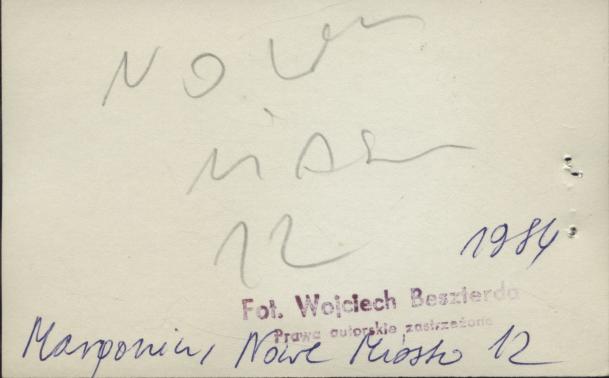 NOWE
MIASTO
12
1984
Fot. Wojciech Beszterda
Prawa autorskie zastrzeżone
Margonin, Nowe Miasto 12